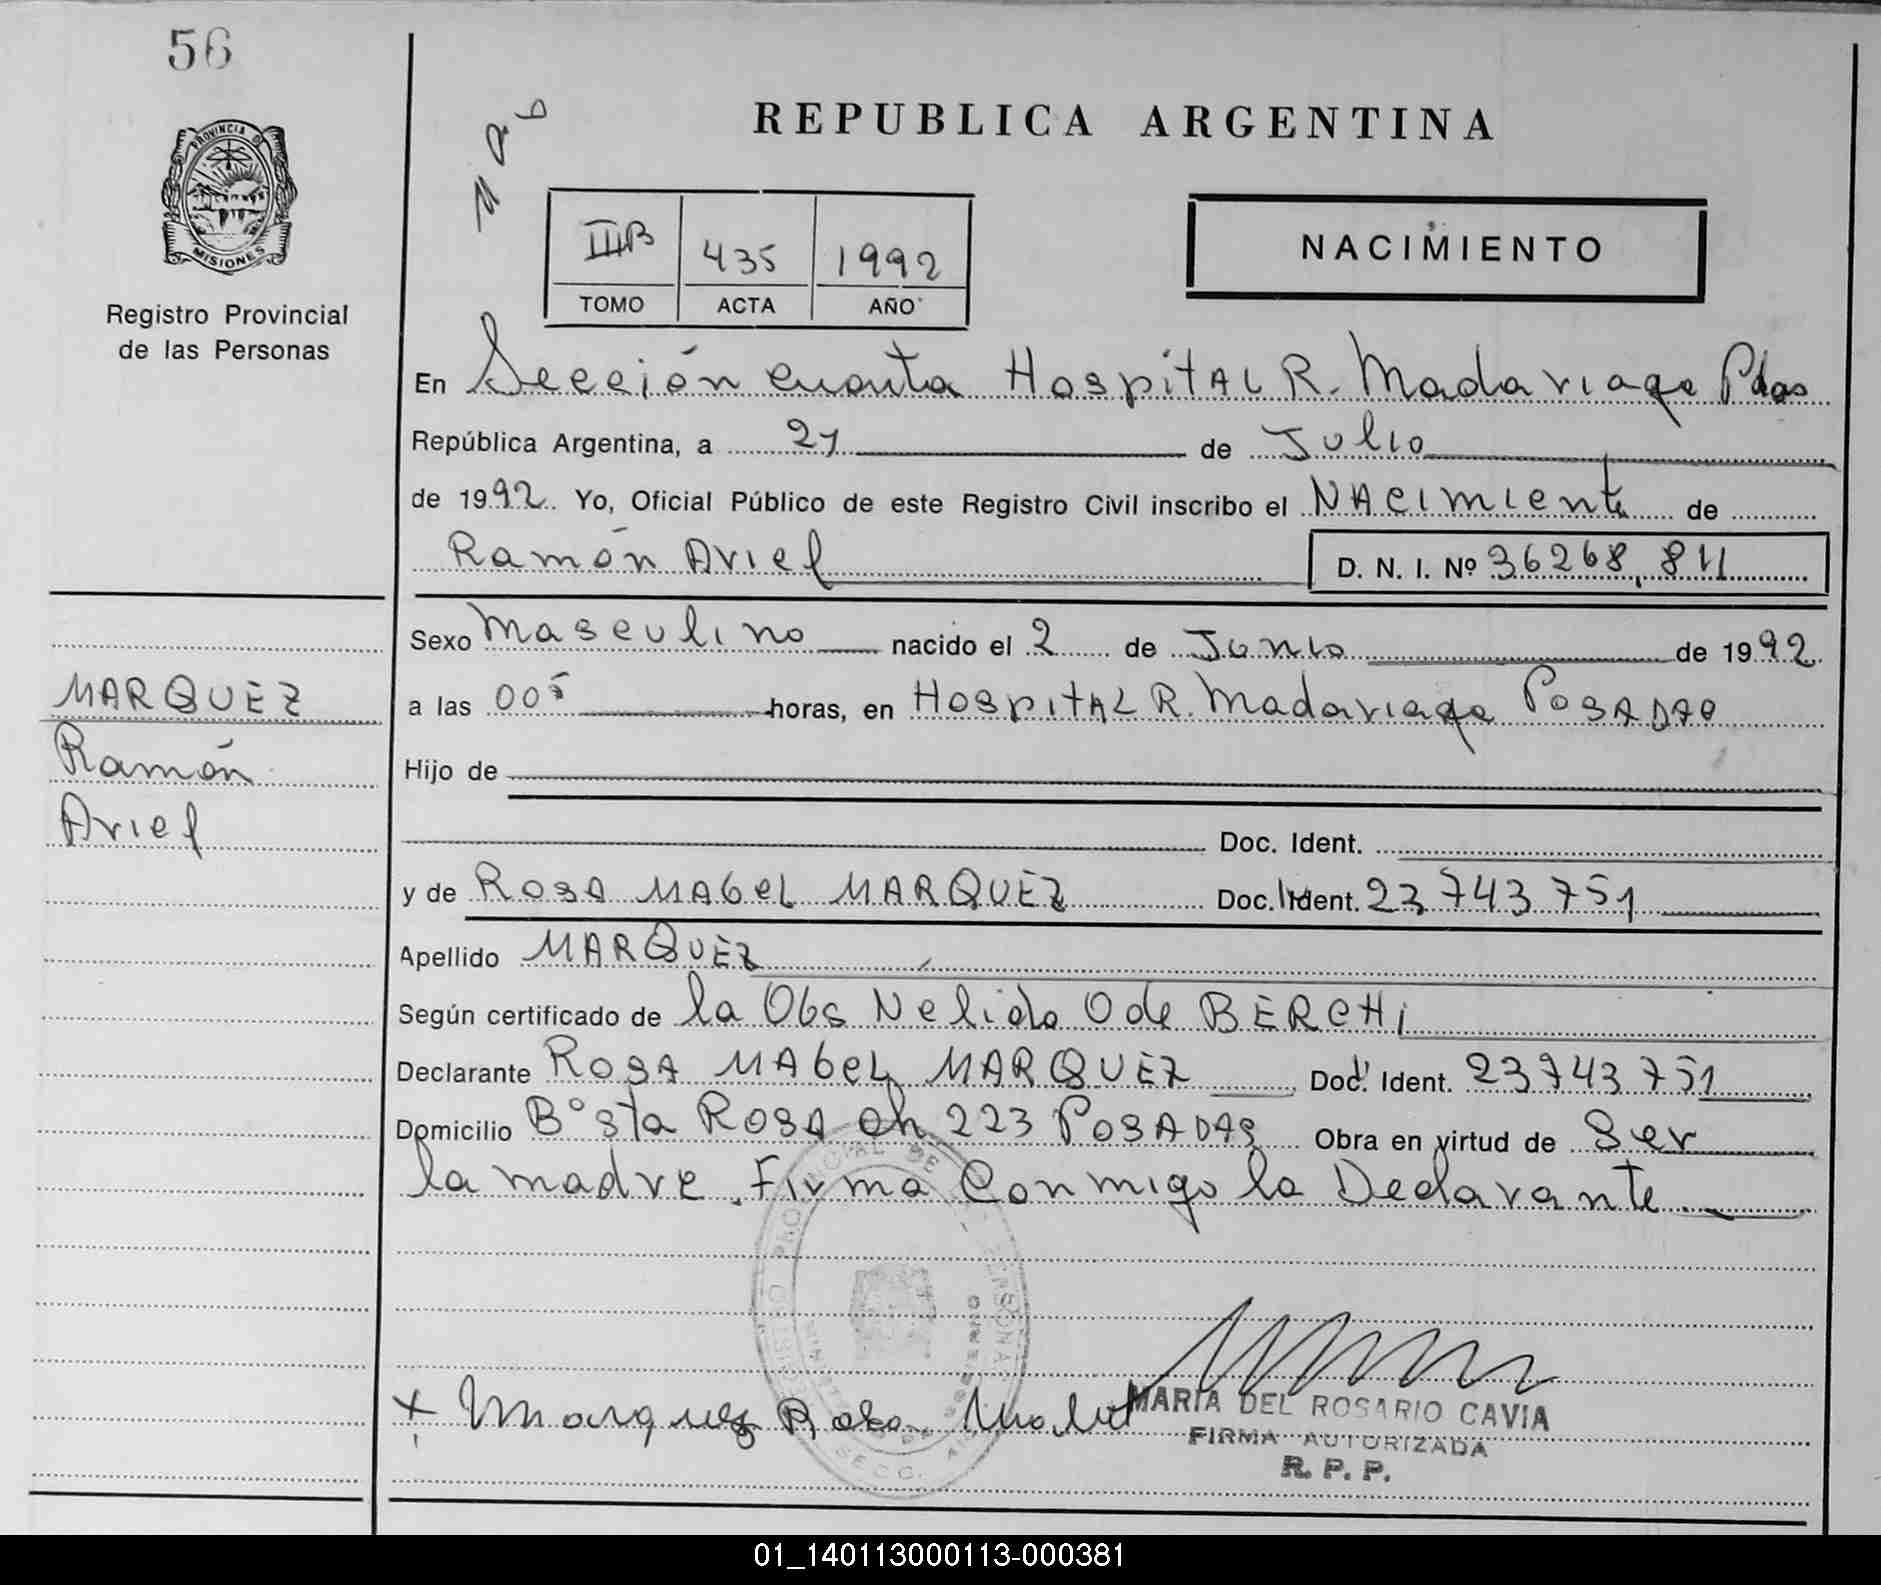 56
REPUBLICA ARGENTINA
PROVINCIA DE
MISIONES
Registro Provincial
de las Personas
IIIB 435 1992
TOMO ACTA AÑO
NACIMIENTO
En Sección cuarta Hospital R. Madariaga Pdas
República Argentina, a 21 de Julio
de 1992. Yo, Oficial Público de este Registro Civil inscribo el NAcimiento de
Ramón Ariel D. N. I. Nº 36268.811
Sexo masculino nacido el 2 de Junio de 1992
MARQUEZ
Ramón
Ariel
a las 00⁵ horas, en HospitAL R. Madariaga POSADAS
Hijo de
Doc. Ident.
y de ROSA MAbeL MARQUEZ Doc. Ident. 23743751
Apellido MARQUEZ
Según certificado de la Obs Nelida O de BERCHi
Declarante ROSA MAbeL MARQUEZ Doc. Ident. 23743751
Domicilio Bº Sta ROSA ch 223 POSADAS Obra en virtud de Ser
la madre. Firma Conmigo la Declarante.
x Marquez Rosa Mabel
MARIA DEL ROSARIO CAVIA
FIRMA AUTORIZADA
R. P. P.
01_140113000113-000381